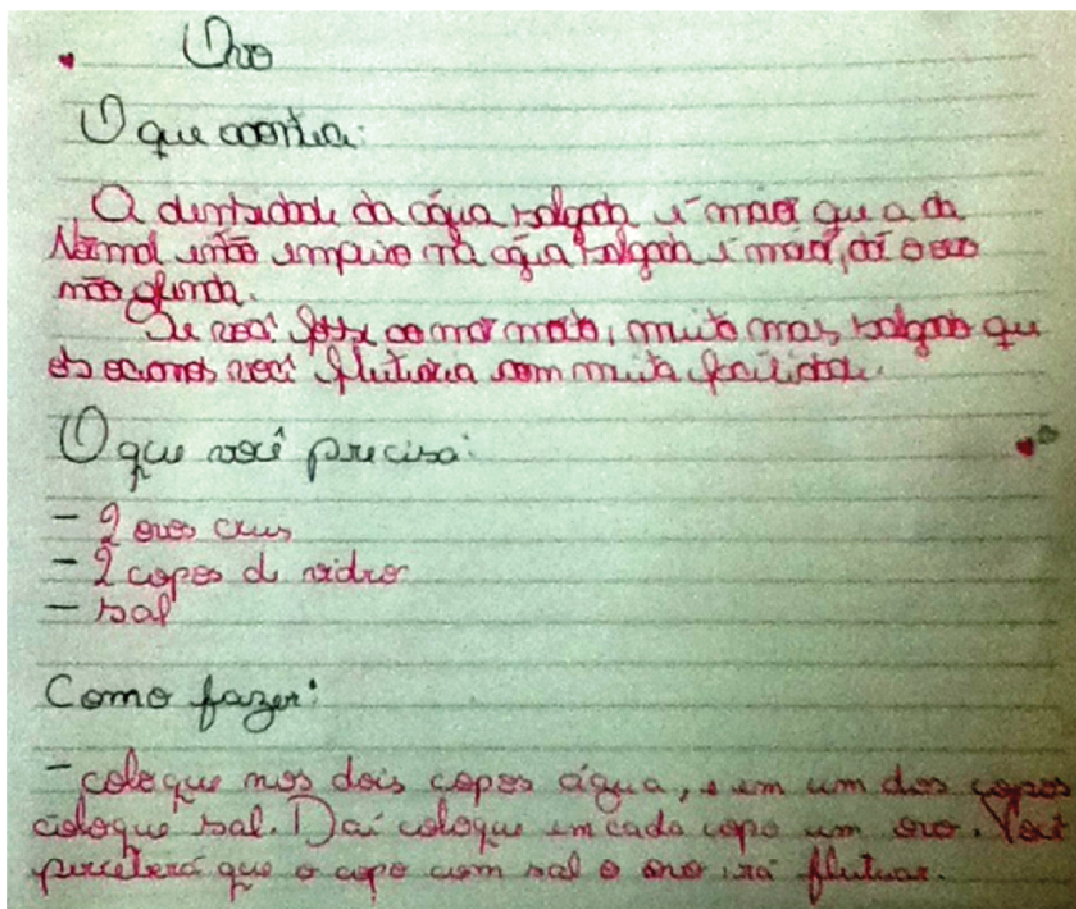 Ovo
O que acontece:
A densidade da água salgada é maior que a da
Normal então empuxo na água salgada é maior, daí o ovo
não afunda.
Se você fosse ao mar morto, muito mas salgado que
os oceanos você flutuaria com muita facilidade.
O que você precisa:
- 2 ovos crus
- 2 copos de vidro
- sal
Como fazer:
- coloque nos dois copos água, e em um dos copos
coloque sal. Daí coloque em cada copo um ovo. Você
perceberá que o copo com sal o ovo irá flutuar.